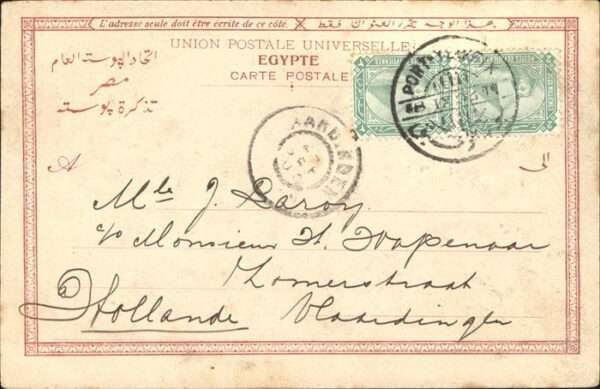 L'adresse seule doit être écrite de ce côté.
UNION POSTALE UNIVERSELLE.
EGYPTE
CARTE POSTALE
اتحاد البوستة العام
مصر
تذكرة بوستة
PORT
AARDINGEN
A
الى
Mlle J. Baroy
c/o Monsieur H. Wapenaar
Zomerstraat
Hollande Vlaardingen